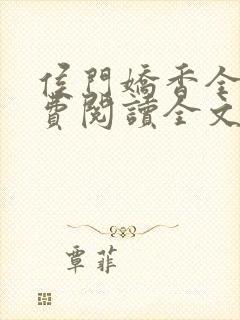 侯門嬌香全
費閱讀全文
覃菲